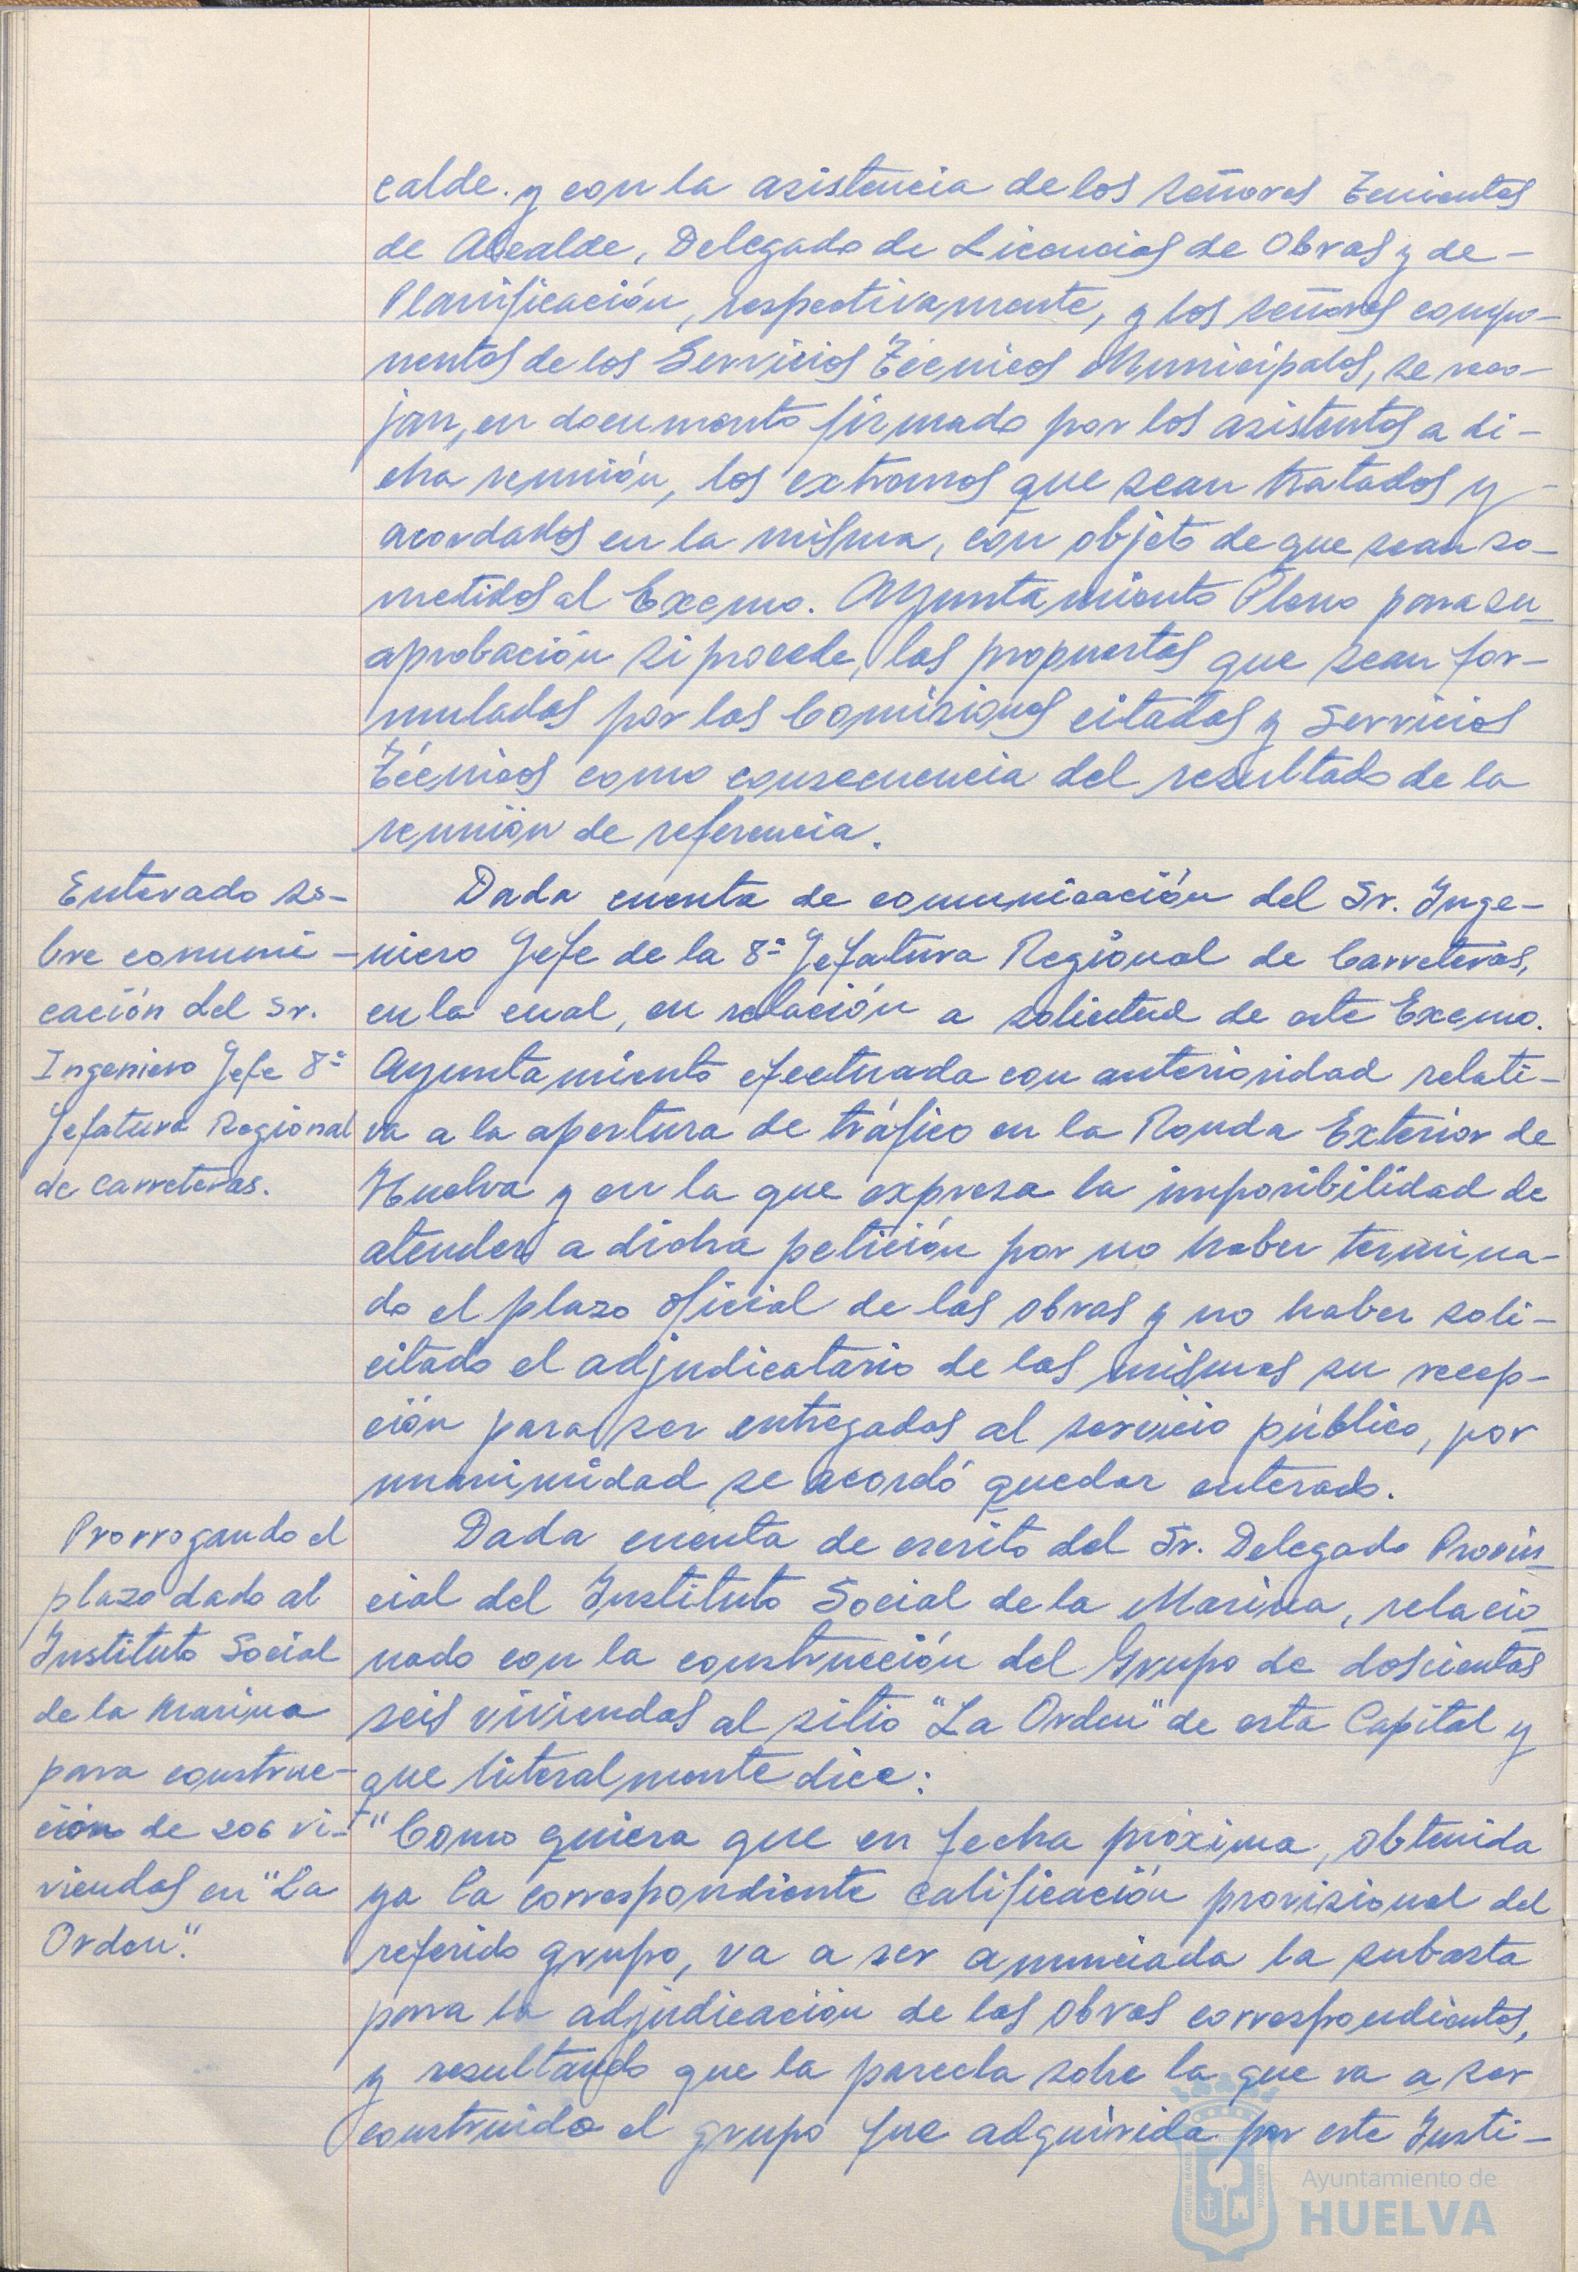 calde. y con la asistencia de los señores Tenientes
de Alcalde, Delegado de Licencias de Obras y de -
Planificación, respectivamente, y los señores compo-
nentes de los Servicios Técnicos Municipales, se reco-
jan, en documento firmado por los asistentes a di-
cha reunión, los extremos que sean tratados y -
acordados en la misma, con objeto de que sean so-
metidos al Excmo. Ayuntamiento Pleno para su
aprobación si procede, las propuestas que sean for-
muladas por las Comisiones citadas y Servicios
Técnicos como consecuencia del resultado de la
reunión de referencia.
Enterado so-
bre comuni-
cación del Sr.
Ingeniero Jefe 8ª
Jefatura Regional
de Carreteras.
Dada cuenta de comunicación del Sr. Inge-
niero Jefe de la 8ª Jefatura Regional de Carreteras,
en la cual, en relación a solicitud de este Excmo.
Ayuntamiento efectuada con anterioridad relati-
va a la apertura de tráfico en la Ronda Exterior de
Huelva y en la que expresa la imposibilidad de
atender a dicha petición por no haber termina-
do el plazo oficial de las obras y no haber soli-
citado el adjudicatario de las mismas su recep-
ción para ser entregadas al servicio público, por
unanimidad se acordó quedar enterado.
Prorrogando el
plazo dado al
Instituto Social
de la Marina
para construc-
ción de 206 vi-
viendas en "La
Orden".
Dada cuenta de escrito del Sr. Delegado Provin-
cial del Instituto Social de la Marina, relacio-
nado con la construcción del Grupo de doscientas
seis viviendas al sitio "La Orden" de esta Capital y
que literalmente dice:
"Como quiera que en fecha próxima, obtenida
ya la correspondiente calificación provisional del
referido grupo, va a ser anunciada la subasta
para la adjudicación de las obras correspondientes,
y resultando que la parcela sobre la que va a ser
construido el grupo fue adquirida por este Insti-
Ayuntamiento de
HUELVA